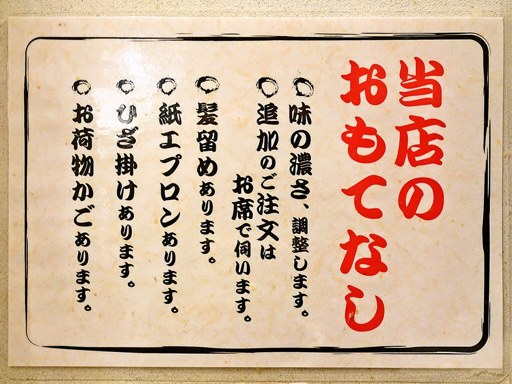 当店の
おもてなし
○味の濃さ、調整します。
○追加のご注文は
お席で伺います。
○髪留めあります。
○紙エプロンあります。
○ひざ掛けあります。
○お荷物かごあります。